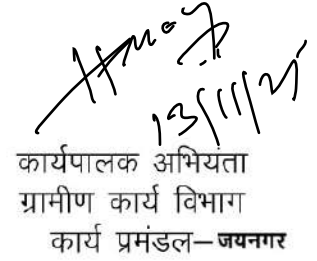 13/11/25
कार्यपालक अभियंता
ग्रामीण कार्य विभाग
कार्य प्रमंडल–जयनगर